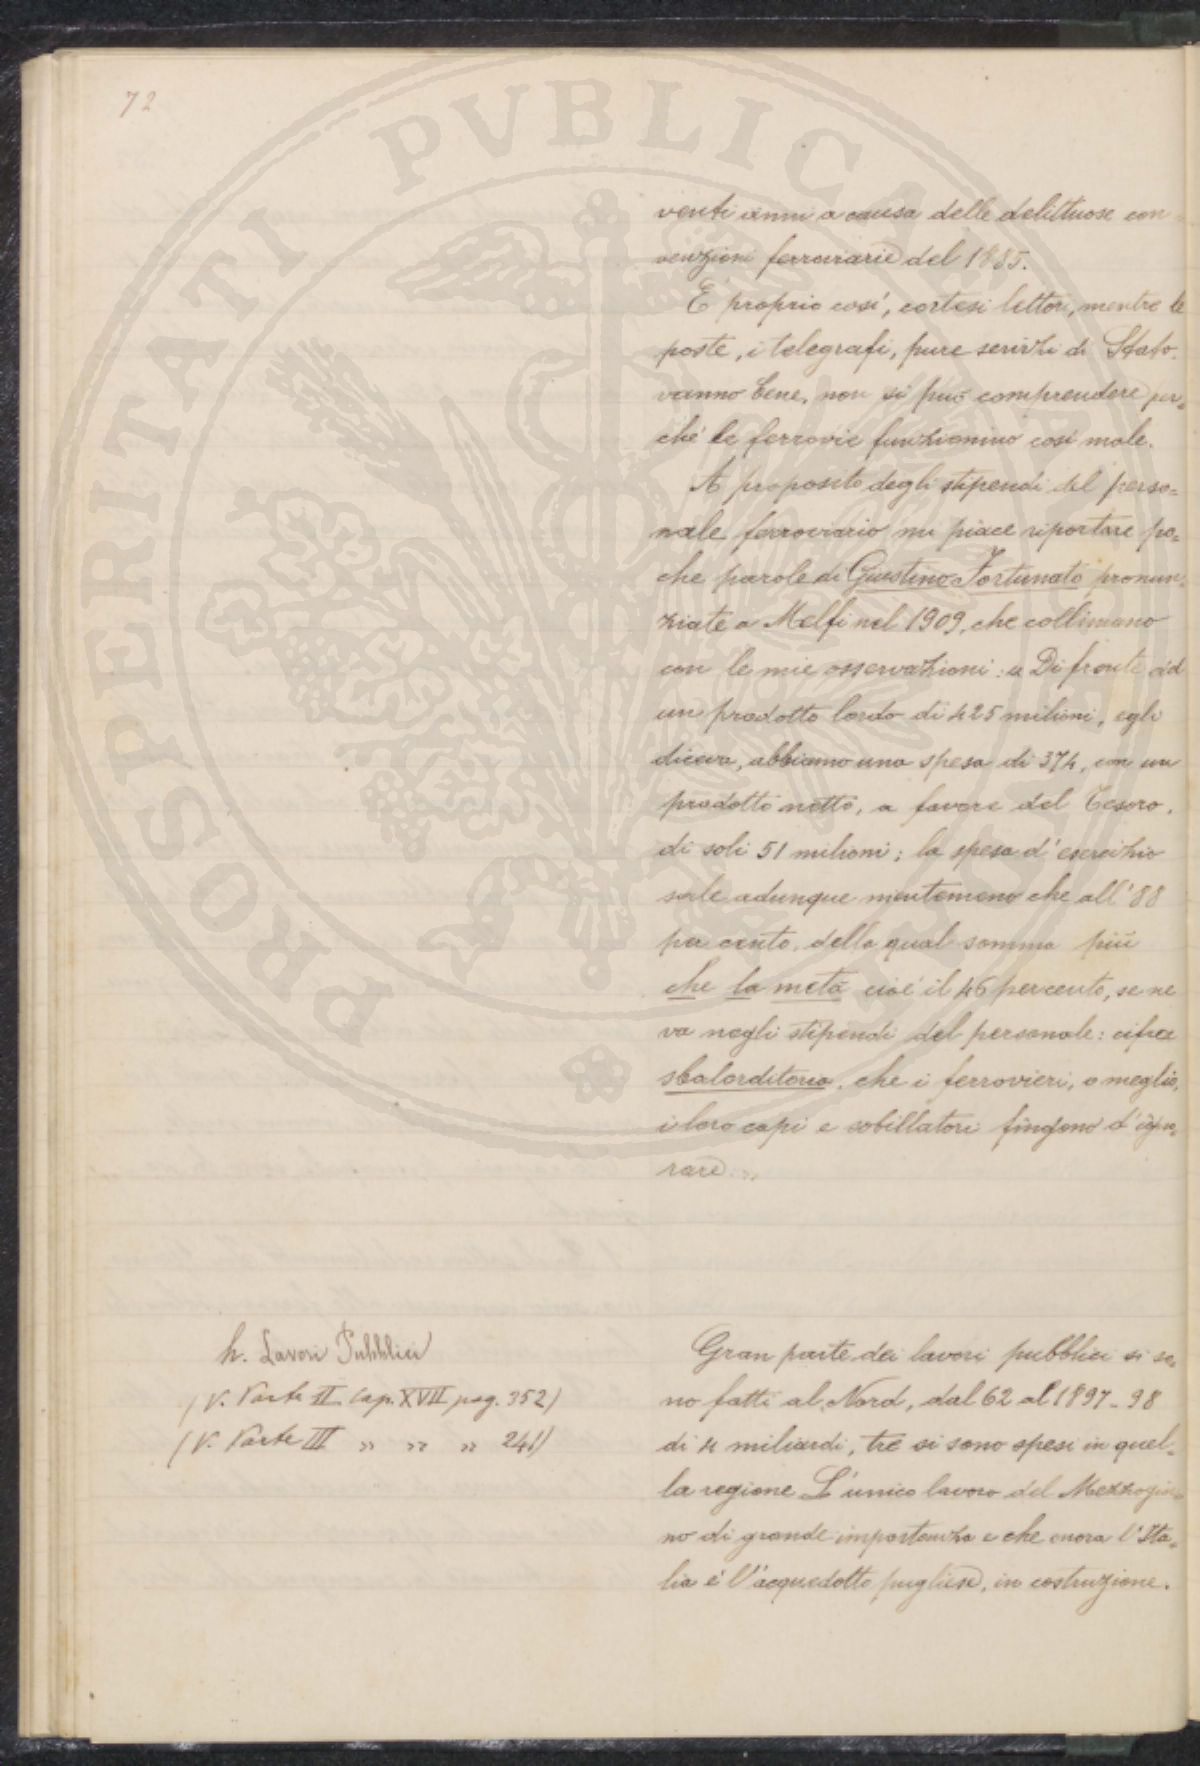 72
venti anni a causa delle delittuose con-
venzioni ferroviarie del 1885.
E' proprio così, cortesi lettori, mentre le
poste, i telegrafi, pure servizi di Stato.
vanno bene, non si può comprendere per-
ché le ferrovie funzionino così male.
A proposito degli stipendi del perso=
nale ferroviario mi piace riportare po=
che parole di Giustino Fortunato pronun=
ziate a Melfi nel 1909, che collimano
con le mie osservazioni: « Di fronte ad
un prodotto lordo di 425 milioni, egli
diceva, abbiamo una spesa di 374, con un
prodotto netto, a favore del Tesoro,
di soli 51 milioni; la spesa d'esercizio
sale adunque nientemeno che all'88
per cento, della qual somma più
che la metà cioè il 46 per cento, se ne
va negli stipendi del personale: cifra
sbalorditoria, che i ferrovieri, o meglio,
i loro capi e sobillatori fingono d'igno=
rare ».
h. Lavori Pubblici
(V. Parte II Cap. XVII pag. 352)
(V. Parte III » » » 241)
Gran parte dei lavori pubblici si so=
no fatti al Nord, dal 62 al 1897-98
di 4 miliardi, tre si sono spesi in quel=
la regione L'unico lavoro del Mezzogior=
no di grande importanza e che onora l'Ita=
lia é l'acquedotto pugliese, in costruzione.
PROSPERITATI PVBLICAE